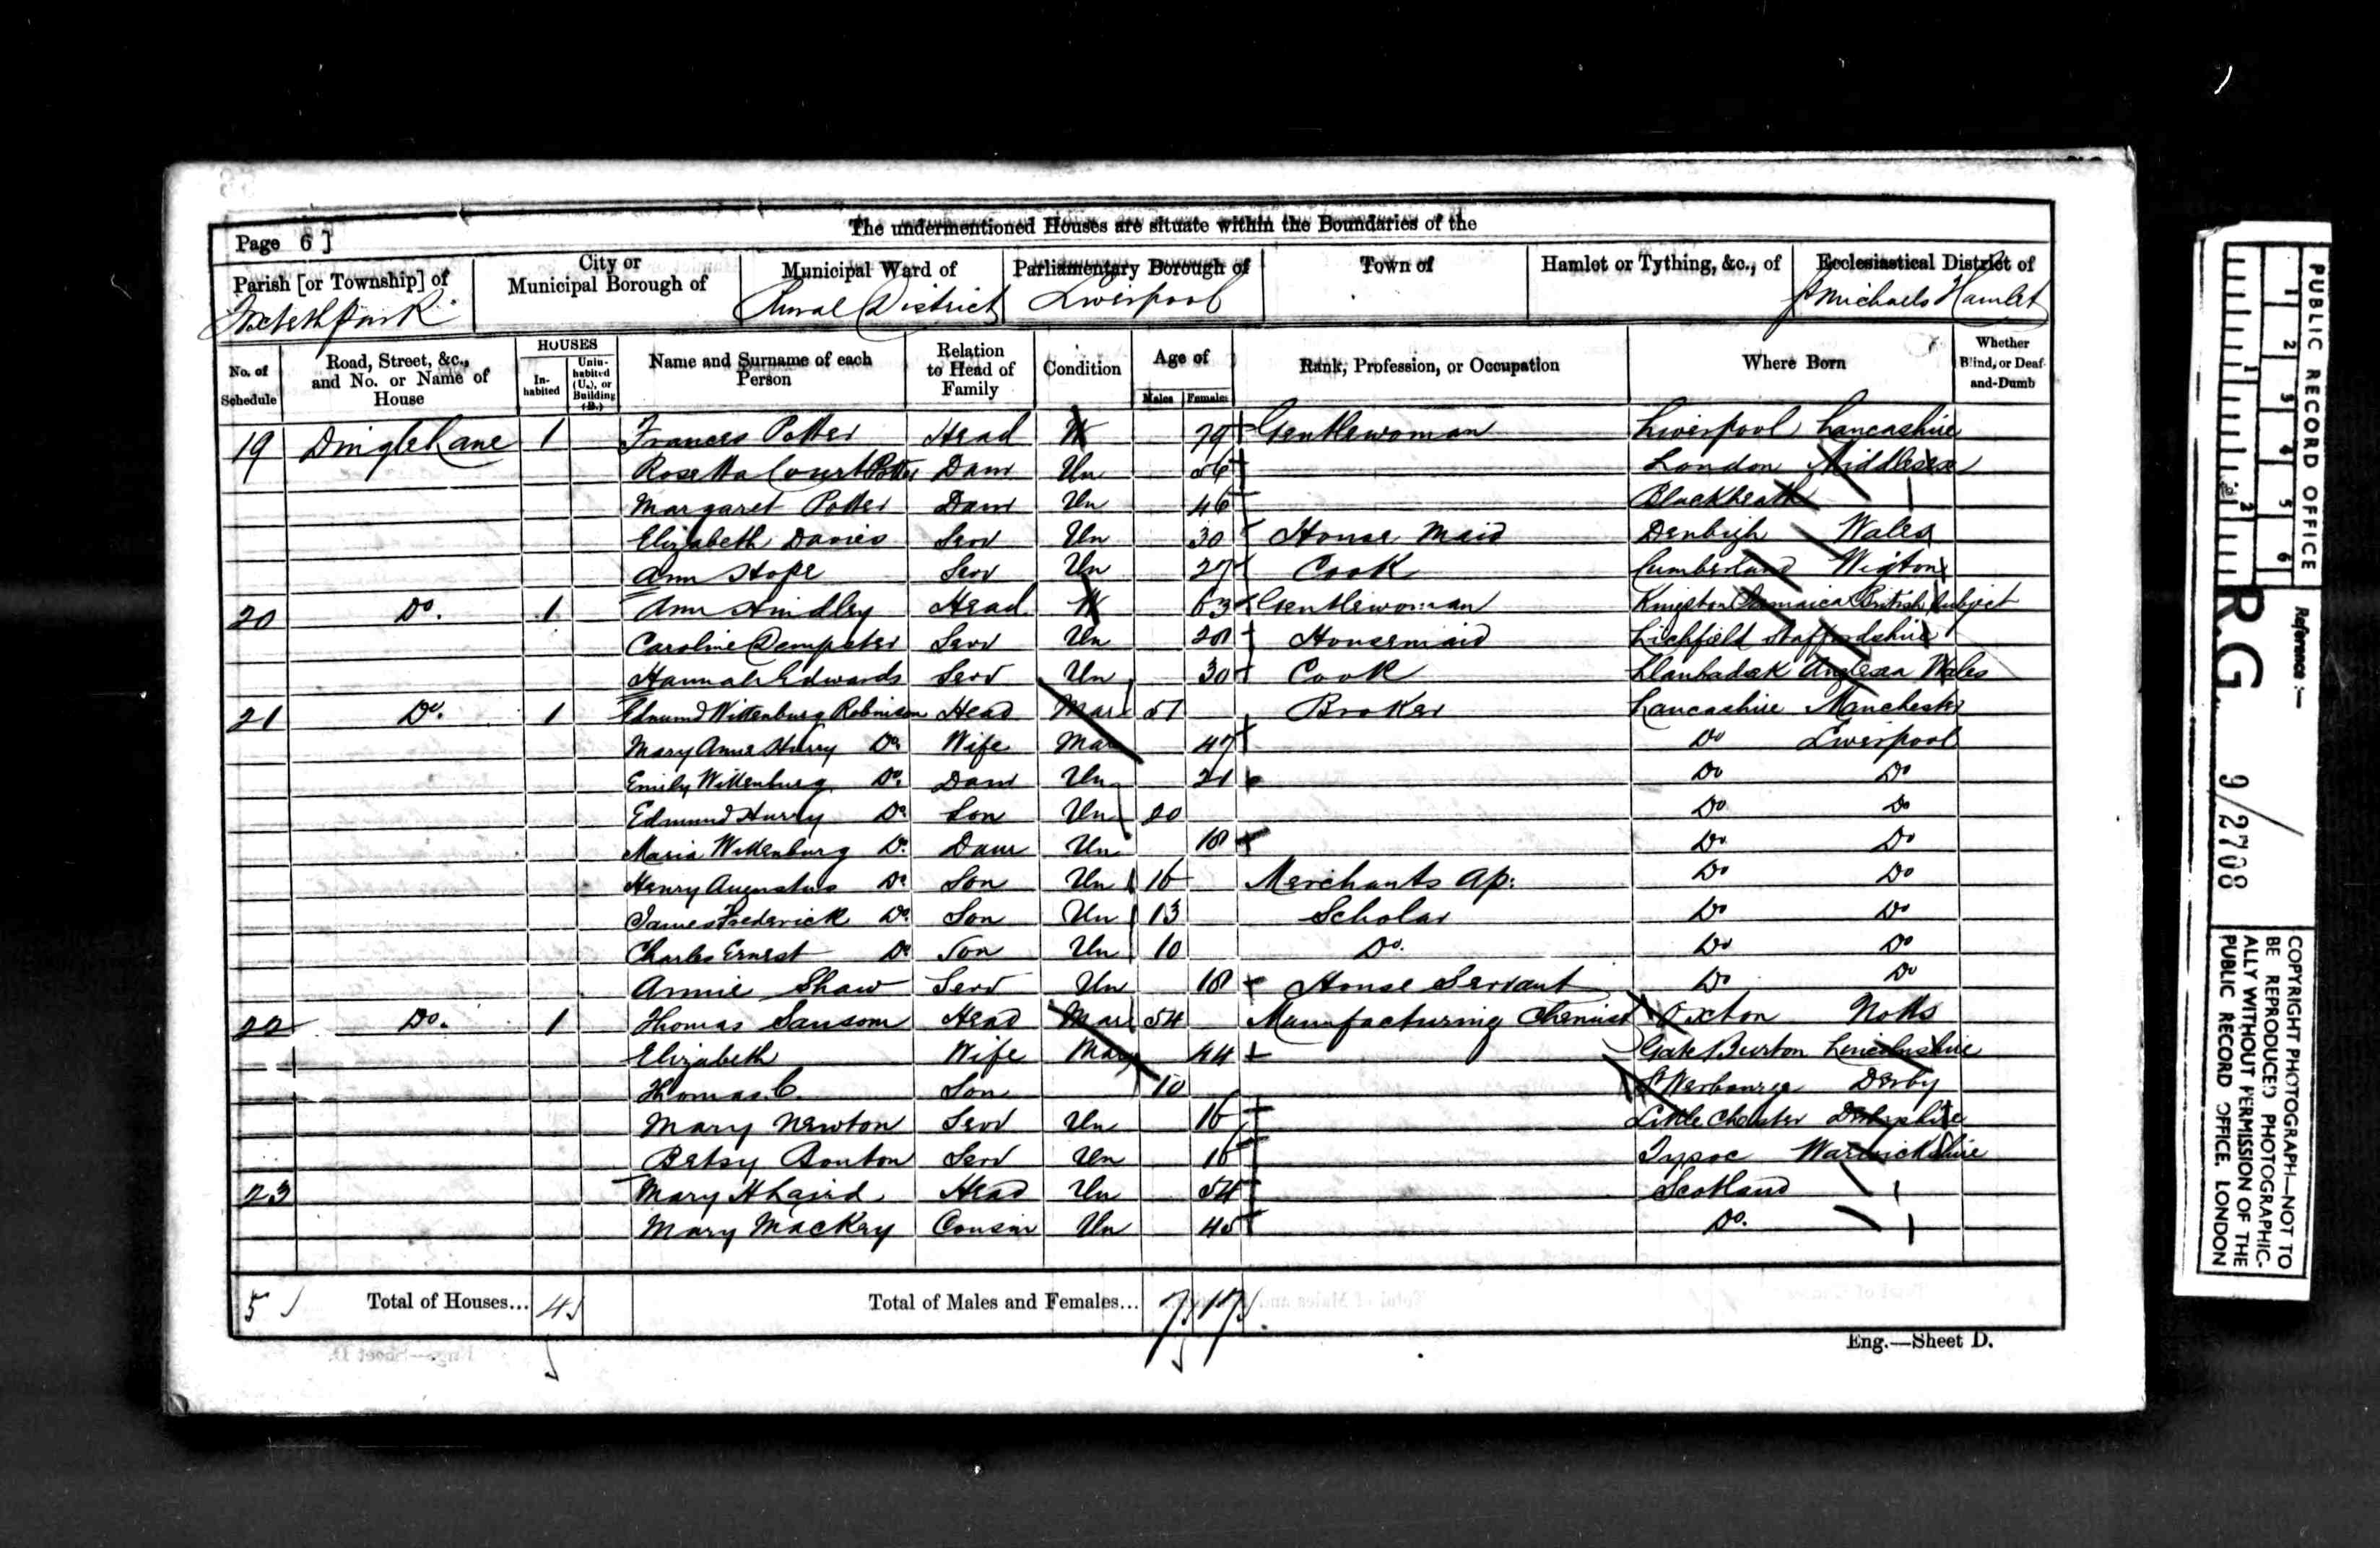 Page 6 ]
The undermentioned Houses are situate within the Boundaries of the
Parish [or Township] of
City or Municipal Borough of
Municipal Ward of
Parliamentary Borough of
Town of
Hamlet or Tything, &c., of
Ecclesiastical District of
Toxteth Park Rural District Liverpool St Michaels Hamlet
No. of Schedule
Road, Street, &c., and No. or Name of House
HOUSES
In-habited
Unin-habited (U.), or Building (B.)
Name and Surname of each Person
Relation to Head of Family
Condition
Age of
Males Females
Rank, Profession, or Occupation
Where Born
Whether Blind, or Deaf-and-Dumb
19 Dingle Lane 1 Frances Potter Head W 79 Gentlewoman Liverpool Lancashire
Rosetta Court Potter Daur Un 56 London Middlesex
Margaret Potter Daur Un 46 Blackheath
Elizabeth Davies Serv Un 30 House Maid Denbigh Wales
Ann Hope Serv Un 27 Cook Cumberland Wigton
20 Do. 1 Ann Hindley Head W 63 Gentlewoman Kingston Jamaica British Subject
Caroline Dempster Serv Un 28 Housemaid Lichfield Staffordshire
Hannah Edwards Serv Un 30 Cook Anglesea Wales
21 Do. 1 Edmund Wittenburg Robinson Head Mar 51 Broker Lancashire Manchester
Mary Anne Hurry Do Wife Mar 47 Do Liverpool
Emily Wittenburg Do Daur Un 21 Do Do
Edmund Hurry Do Son Un 20 Do Do
Maria Wittenburg Do Daur Un 18 Do Do
Henry Augustus Do Son Un 16 Merchants Ap: Do Do
James Frederick Do Son Un 13 Scholar Do Do
Charles Ernest Do Son Un 10 Do. Do Do
Annie Shaw Serv Un 18 House Servant Do Do
22 Do. 1 Thomas Sansom Head Mar 54 Manufacturing Chemist Oxton Notts
Elizabeth Wife Mar 44 Gate Burton Lincolnshire
Thomas C. Son 10 Derby
Mary Newton Serv Un 16 Little Chester Derbyshire
Betsy Bonton Serv Un 16 Tysoe Warwickshire
23 Mary H Laird Head Un 54 Scotland
Mary Mackey Cousin Un 45 Do.
5 Total of Houses... 4 Total of Males and Females... 7 17
Eng.—Sheet D.
PUBLIC RECORD OFFICE
1 2 3 4 5 6
1 2
Reference:—
R.G. 9/2708
COPYRIGHT PHOTOGRAPH—NOT TO
BE REPRODUCED PHOTOGRAPHIC-
ALLY WITHOUT PERMISSION OF THE
PUBLIC RECORD OFFICE, LONDON